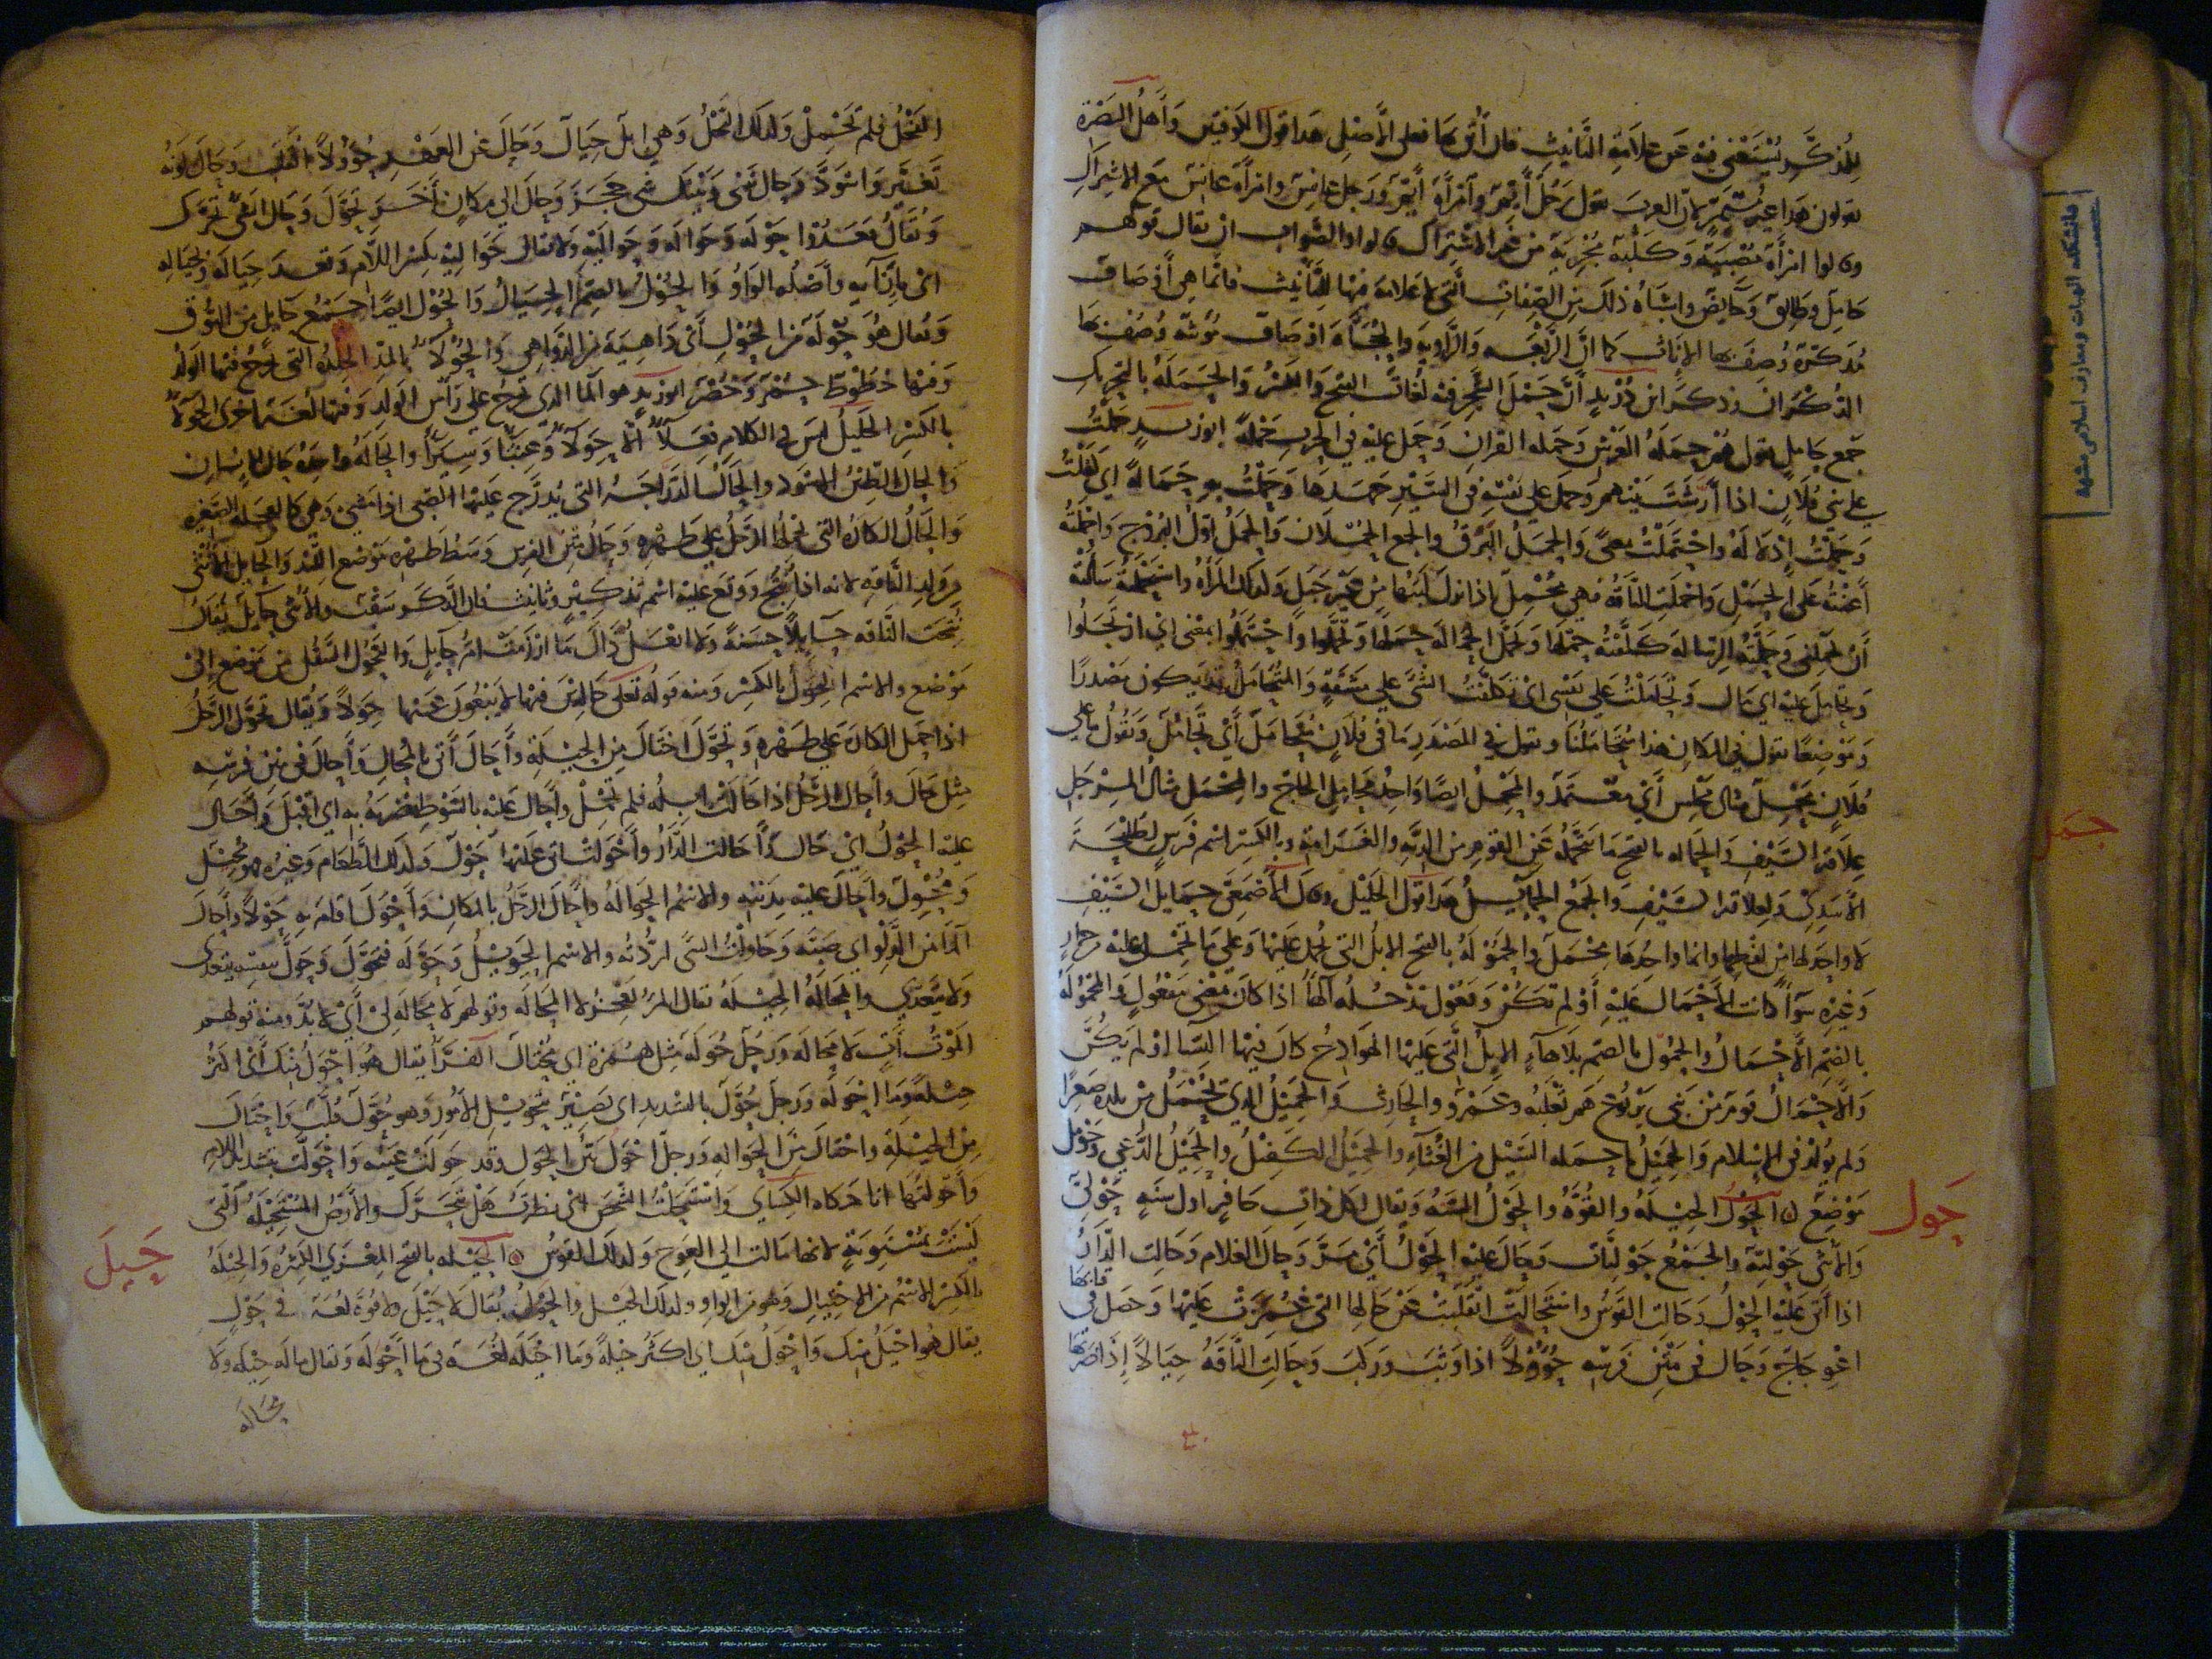 للمذكر يستغنى فيه عن علامة التانيث فان أتى بها فعلى الأصل هذا قول الكوفيين وأهل البصرة
يقولون هذا غير مستمر لان العرب تقول رجل أيم وامرأة أيم ورجل عانس وامرأة عانس مع الاشتراك
وقالوا امرأة مصبية وكلبة مجرية من غير الاشتراك قالوا والصواب ان يقال قولهم
حامل وطالق وحايض واشباه ذلك من الصفات التي لا علامة فيها للتأنيث فانما هي أوصاف
مذكرة وصف بها الإناث كما ان الربعة والراوية والخجأة أوصاف مؤنثة وصف بها
الذكران وذكر ابن دريد أن حمل الشجر فيه لغتان الفتح والكسر والحملة بالتحريك
جمع حامل يقول هم حملة العرش وحملة القران وحمل عليه في الحرب حملة ابو زيد حملت
على بني فلان اذا أرشت بينهم وحمل على نفسه في السير جهدها وحملت به حمالة اي كفلت
وحملت إدلاله واحتملت بمعنى والحمل البرق والجمع الحملان والحمل اول البروج واحملته
أعنته على الحمل واحملت الناقة فهي محمل إذا نزل لبنها من غير حبل وكذلك المرأة واستحملته سألته
أن يحملني وحملته الرسالة كلفته حملها وتحمل الحمالة حملها وتحملوا واحتملوا بمعنى اي ارتحلوا
وتحامل عليه اي مال وتحاملت على نفسي اي تكلفت الشيء على مشقة والمتحامل قد يكون مصدرا
وموضعا تقول في المكان هذا متحاملنا وتقول في المصدر ما في فلان متحامل أي تحامل وتقول ما على
فلان محمل مثال مجلس أي معتمد والمحمل ايضا واحد محامل الحاج والمحمل مثال المرجل
علاقة السيف والحمالة بالفتح ما تتحمله عن القوم من الدية والغرامة وبالكسر اسم فرس لطليحة
الأسدي ولعلاقة السيف والجمع الحمايل هذا قول الخليل وقال الأصمعي حمايل السيف
لا واحد لها من لفظها وانما واحدها محمل والحمولة بالفتح الابل التي تحمل عليها وعلى ما يحمل عليه من حمار
وغيره سوآ كانت الأحمال عليه أو لم تكن وفعول تدخله الهآ اذا كان بمعنى مفعول والحمولة
بالضم الأحمال والحمول بالضم بلا هآء الابل التي عليها الهوادج كان فيها النسا او لم يكن
والأحمال قوم من بني يربوع هم ثعلبة وعمرو والحارث والحميل الذي يحمل من بلده صغيرا
ولم يولد في الاسلام والحميل ما حمله السيل من الغثآء والحميل الكفيل والحميل الدعي وحومل
موضع الحول الحيلة والقوة والحول السنة ويقال لكل ذات حافر اول سنة حولي
والانثى حولية والجمع حوليات وحال عليه الحول أي مر وحال الغلام وحالت الدار
اذا أتى عليه الحول وحالت القوس واستحالت انقلبت عن حالها التي غمزت عليها وحصل في قابها
اعوجاج وحال في متن فرسه حوولا اذا وثب وركب وحالت الناقة حيالا إذا ضربها
حمل
حول
الفحل فلم تحمل وكذلك النخل وهي ابل حيال وحال عن العهد حوولا انقلب وحال لونه
تغير واسود وحال بيني وبينك شي حجز وحال الى مكان أخر تحول وحال الشي تحرك
ويقال قعدوا حوله وحواله وحواليه ولا تقل حواليه بكسر اللام وقعد حياله وبحياله
اي بازآيه وأصله الواو والحول بالضم الحيال والحول ايضا جمع حايل من النوق
ويقال هو حولة من الحول أي داهية من الدواهي والحولآ بالمد الجلدة التي تخرج فيها الولد
وفيها خطوط حمر وخضر ابو زيد هو الما الذي يخرج على رأس الولد وفيها لغة اخرى الحولآ
بالكسر الخليل ليس في الكلام فعلآ الا حولآ وعنبآ وسيرآ والحالة واحدة حال الانسان
والحال الطين الاسود والحال الدراجة التي يدرج عليها الصبي اذا مشى وهي كالعجلة الصغيرة
والحال الكارة التي يحملها الرجل على ظهره وحال متن الفرس وسط ظهره موضع اللبد والحايل الأنثى
من ولد الناقة لانه اذا نتج ووقع عليه اسم تذكير وتانيث فان الذكر سقب والانثى حايل يقال
نتجت الناقة حايلا حسنة ولا افعل ذاك ما ارزمت ام حايل والتحول التنقل من موضع الى
موضع والاسم الحول بالكسر ومنه قوله تعالى خالدين فيها لا يبغون عنها حولا ويقال تحول الرجل
اذا حمل الكارة على ظهره وتحول احتال من الحيلة وأحال أتى بالمحال وأحال في متن فرسه
مثل حال وأحال الرجل اذا حالت ابله فلم تحمل وأحال عليه بالسوط يضربه به اي اقبل وأحال
عليه الحول اي حال وأحالت الدار وأحولت اتى عليها حول وكذلك الطعام وغيره فهو محيل
ومحول وأحال عليه بدينه والاسم الحوالة وأحال الرجل بالمكان وأحول اقام به حولا وأحال
المآ من الدلو اي صبه وحاولت الشي اردته والاسم الحويل وحوله فتحول وحول بنفسه يتعدى
ولا يتعدى والمحالة الحيلة يقال المرء يعجز لا المحالة وقولهم لا محالة اي لا بد ومنه قولهم
الموت آت لا محالة ورجل حولة مثل همزة اي محتال الفرآ يقال هو احول منك أي اكثر
حيلة وما احوله ورجل حول بالتشديد اي بصير بتحويل الأمور وهو حول قلب واحتال
من الحيلة واحتال من الحوالة ورجل احول بين الحول وقد حولت عينه واحولت بتشديد اللام
وأحولتها انا حكاه الكساي واستحلت الشخص اي نظرت هل يتحرك والأرض المستحيلة التي
ليست بمستوية لانها مالت الى العوج وكذلك القوس الحيلة بالفتح المعزى الكثيرة والحيلة
بالكسر الاسم من الاحتيال وهو من الواو وكذلك الحيل والحول يقال لا حيل ولا قوة لغة في حول
يقال هو احيل منك واحول منك اي اكثر حيلة وما احيله لغة في ما أحوله ويقال ما له حيلة ولا
محالة
حيل
دانشکده الهیات ومعارف اسلامی مشهد